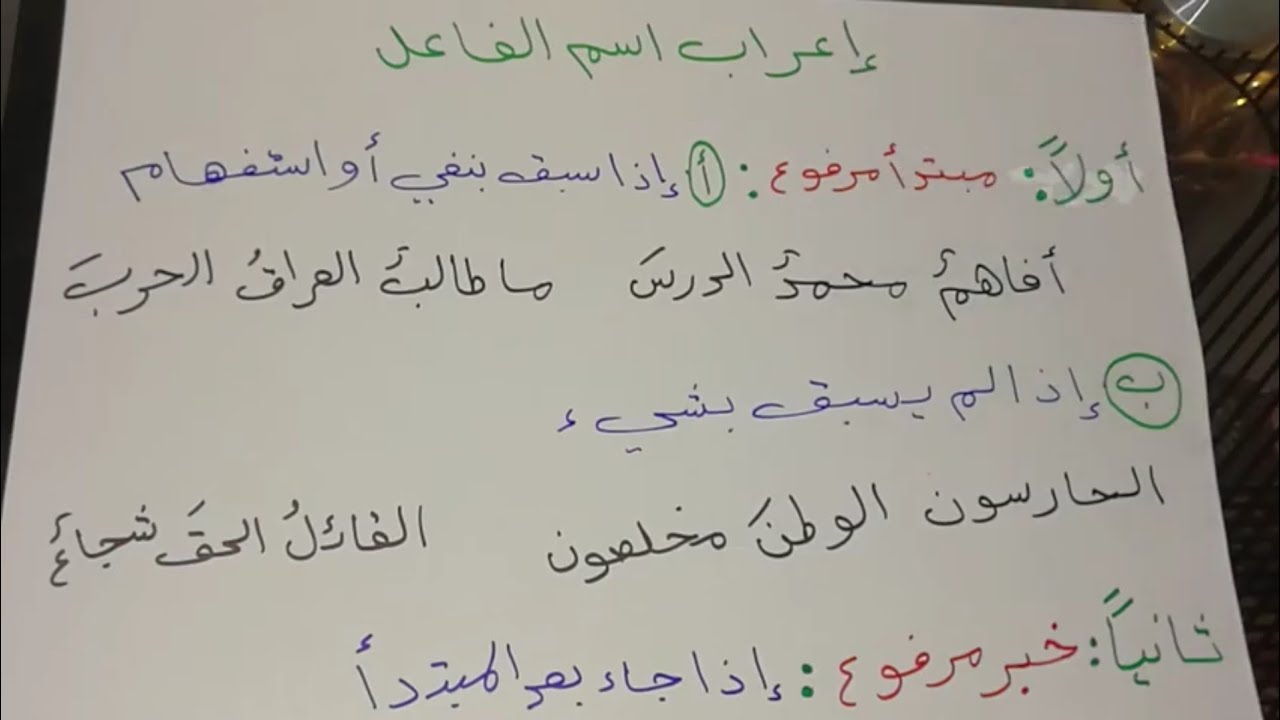 إعراب اسم الفاعل
أولاً: مبتدأ مرفوع: أ إذا سبق بنفي أو استفهام
أفاهمٌ محمدٌ الدرسَ ما طالبٌ العراقُ الحربَ
ب إذا لم يسبق بشيء
الحارسون الوطنَ مخلصون القائلُ الحقَ شجاعٌ
ثانياً: خبر مرفوع: إذا جاء بعد المبتدأ